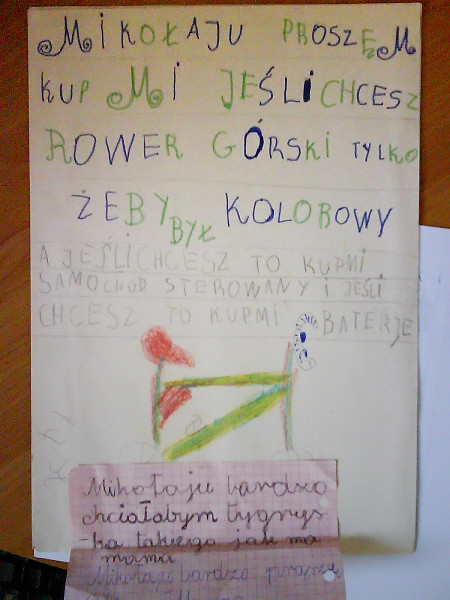 MIKOŁAJU PROSZĘ M
KUP MI JEŚLI CHCESZ
ROWER GÓRSKI TYLKO
ŻEBY BYŁ KOLOROWY
A JEŚLI CHCESZ TO KUP MI
SAMOCHUD STEROWANY I JEŚLI
CHCESZ TO KUP MI BATERJE
Mikołaju bardzo
chciałabym tygrys-
-ka takiego jak ma
mama
Mikołaju bardzo proszę